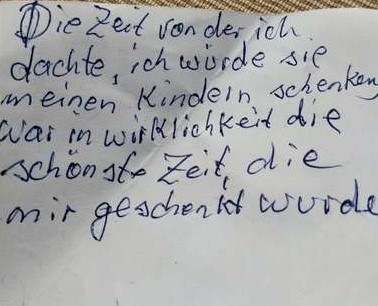 Die Zeit von der ich
dachte, ich würde sie
meinen Kindern schenken
war in wirklichkeit die
schönste Zeit, die
mir geschenkt wurde